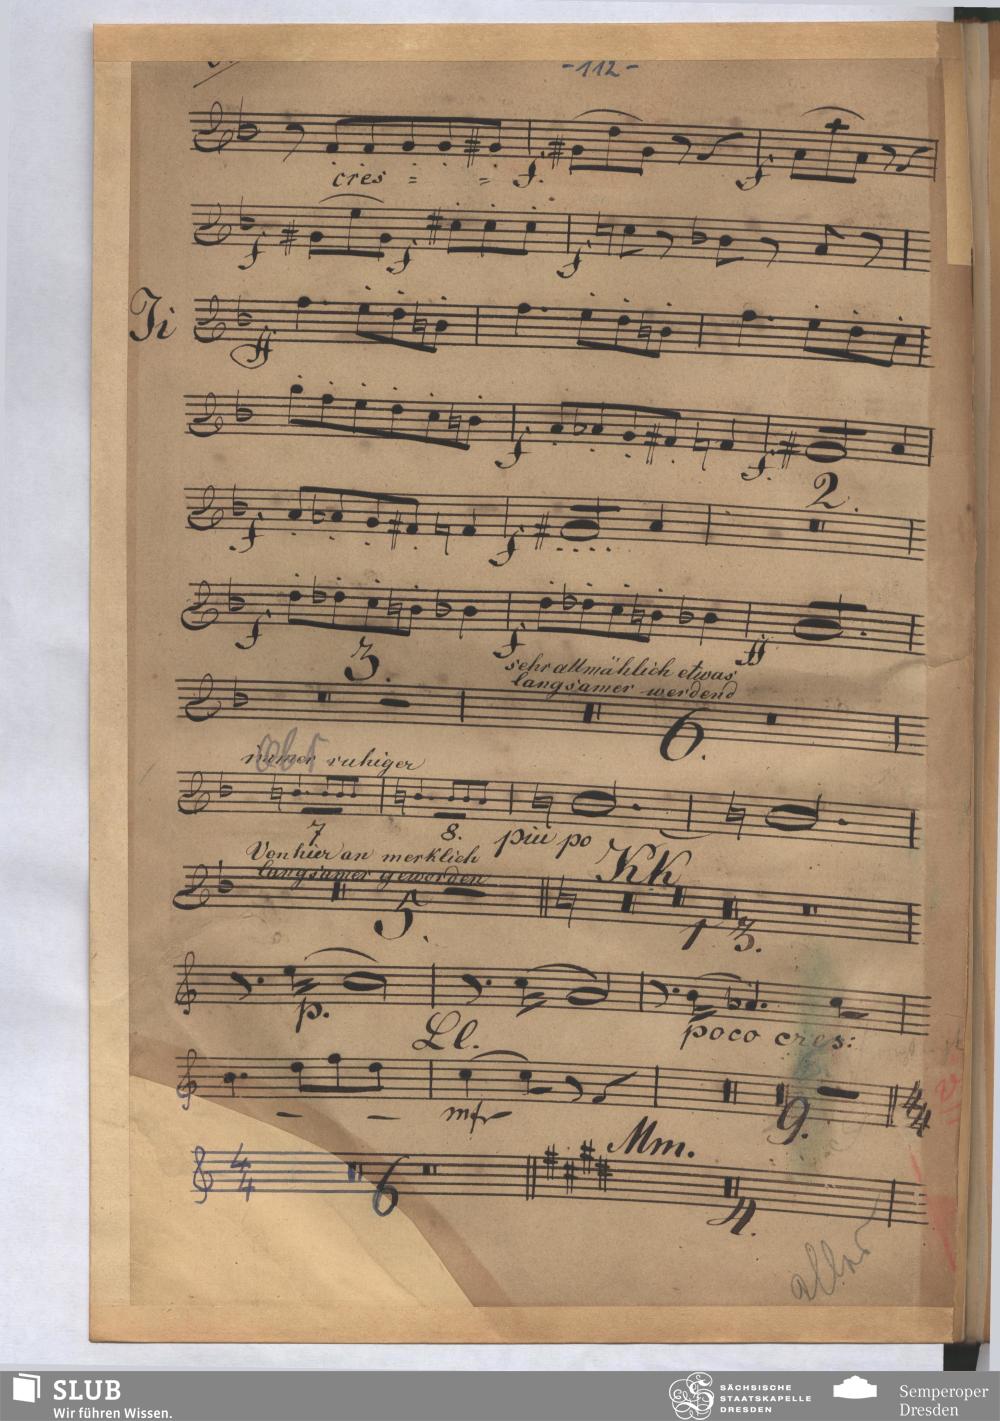 -112-
cres = =
f.
f
f
f
f
Ii
ff
f
f.
2.
f
f
f
f
ff
3.
sehr allmählich etwas
langsamer werdend
6.
immer ruhiger
7
8.
più po
Von hier an merklich
langsamer geworden
5.
Kk
1
3.
p.
Ll.
poco cres:
mf
9.
4/4
4/4
6
Mm.
4.
SLUB
Wir führen Wissen.
SÄCHSISCHE
STAATSKAPELLE
DRESDEN
Semperoper
Dresden